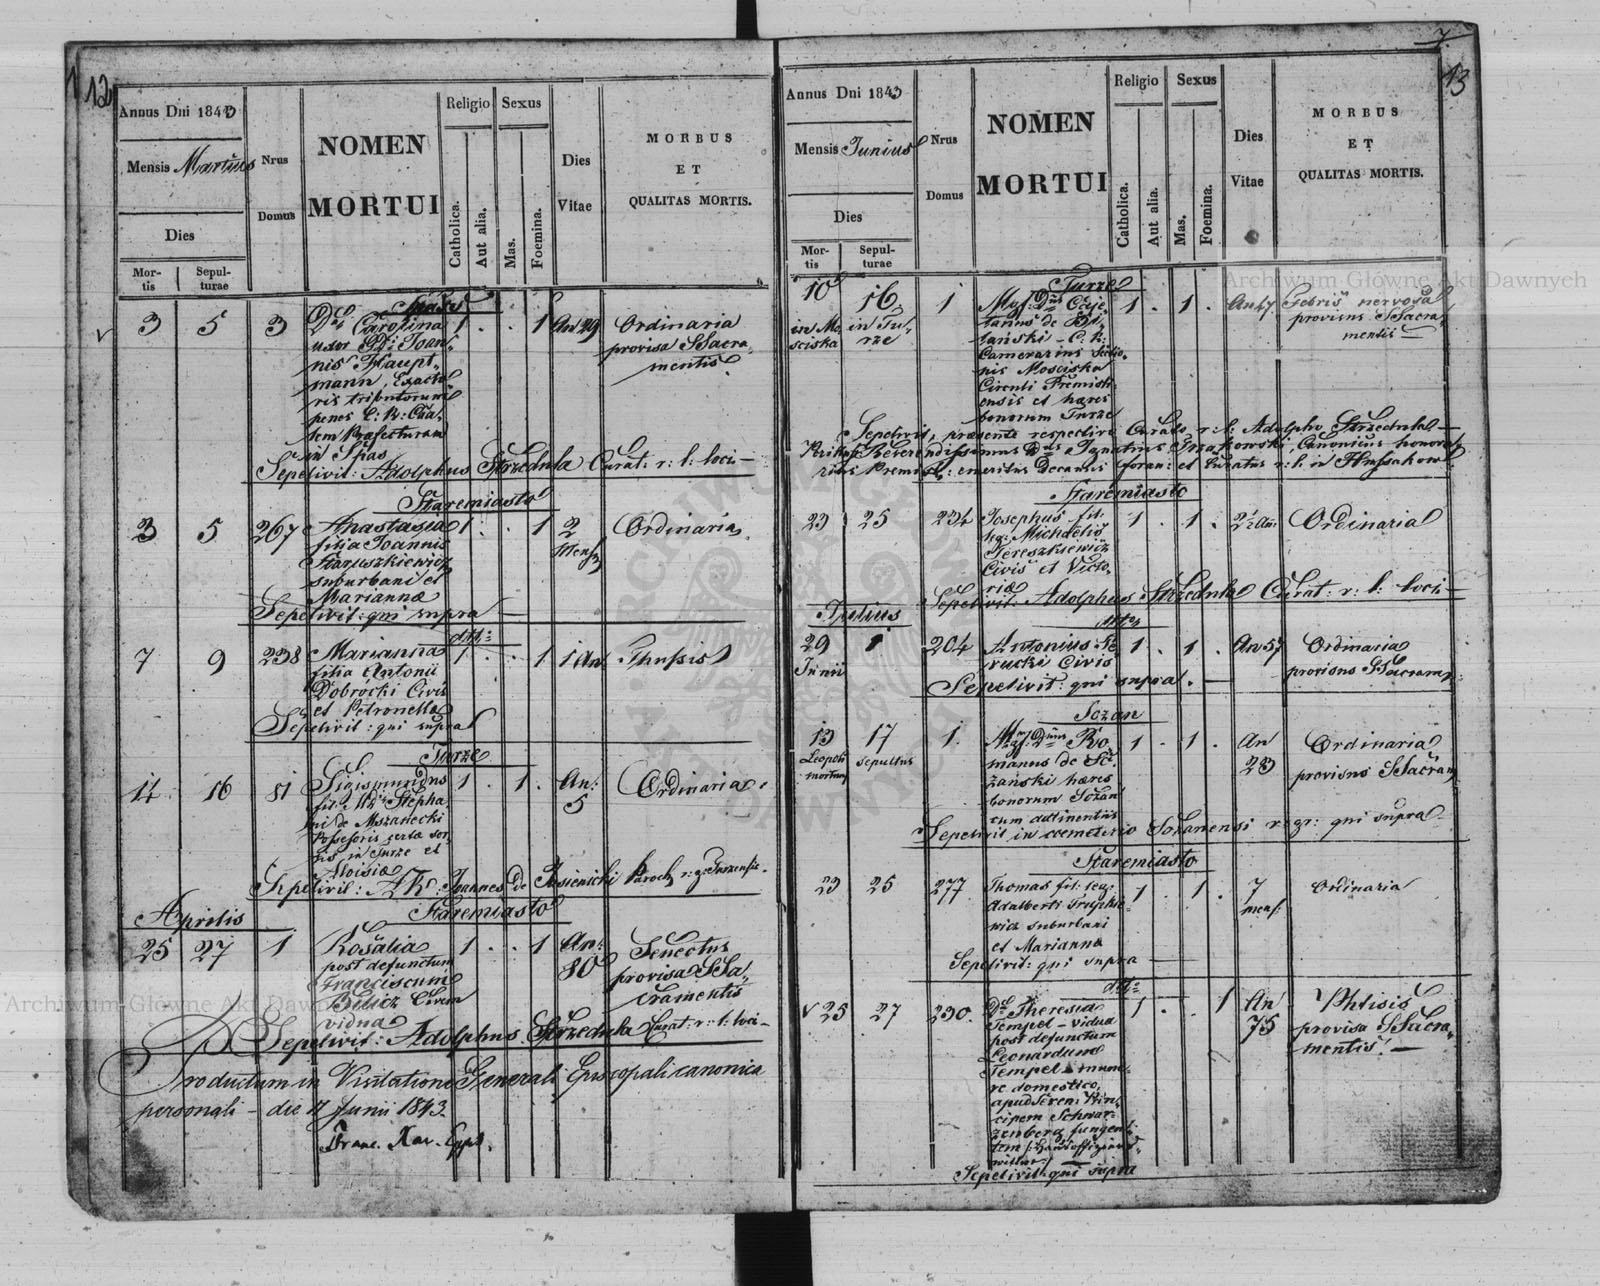 12
Annus Dni 1843
Mensis Martius
Dies
Mortis
Sepulturae
Nrus Domus
NOMEN MORTUI
Religio
Catholica.
Aut alia.
Sexus
Mas.
Foemina.
Dies Vitae
MORBUS
ET
QUALITAS MORTIS.
Spas
3 5 3 Carolina 1 . . 1 An 29 Ordinaria
uxor Joan- provisa SSacra-
nis Haupt- mentis.
mann, Exacto-
ris tributorum
penes C: R: Cam-
Praefecturam
in Spas
Sepelivit: Adolphus Strzedula Curat: r: l: loci
Staremiasto
3 5 267 Anastasia 1 . . 1 2 Ordinaria
filia Joannis Mens
Staruszkiewicz
suburbani et
Mariannæ
Sepelivit: qui supra
dtt:
7 9 238 Marianna 1 . . 1 1 An Thussis
filia Antonii
Dobrocki Civis
et Petronella
Sepelivit: qui supra
Turze
14 16 81 Sigismundus 1 . 1 . An: 5 Ordinaria
fil: Stepha-
ni de Mszanecki
Possessoris certæ sor-
tis in Turze et
Aloisia
Sepelivit: Joannes de Jasienicki Paroch r: g: Turzensis
Aprilis
Staremiasto
25 27 1 Rosalia 1 . . 1 An: 80 Senectus
post defunctum provisa SSa-
Franciscum cramentis
Bilicz Civem
vidua
Sepelivit: Adolphus Strzedula Curat: r: l: loci
Productum in Visitatione Generali Episcopali canonica
personali – die 11 Junii 1843.
Franc. Xav.
7.
13
Annus Dni 1843
Mensis Junius
Dies
Mortis
Sepulturae
Nrus Domus
NOMEN MORTUI
Religio
Catholica.
Aut alia.
Sexus
Mas.
Foemina.
Dies Vitae
MORBUS
ET
QUALITAS MORTIS.
Turze
10 16 1 Mgf: Dnus Caje- 1 . 1 . An 47 Febris nervosa
in Mo- in Tu- tanus de provisus SSacra-
sciska rze C. R: mentis
Camerarius
nis Mosciska
Circuli Premisli-
ensis et hæres
bonorum Turze
Sepelivit, præsente respective Curato r: l: Adolpho Strzedula
Reverendissimus Dnus Ignatius Canonicus honora-
rius Premisl: emeritus Decanus foran: et Curatus r: l: in Hussakow
Staremiasto
23 25 234 Josephus fil: 1 . 1 . 2½ An: Ordinaria
leg: Michaelis
Tereszkiewicz
Civis et Victo-
riæ
Sepelivit: Adolphus Strzedula Curat: r: l: loci
Julius
dtto
29 1 204 Antonius 1 . 1 . An 57 Ordinaria
Junii Civis provisus SSacram:
Sepelivit: qui supra.
Sozan
13 17 1. Mgf: Dnus Ro- 1 . 1 . An 23 Ordinaria
Leopoli sepultus manus de So- provisus SSacram
mortuus zański hæres
bonorum Sozan
cum attinentiis
Sepelivit in coemeterio Sozanensi r: gr: qui supra
Staremiasto
23 25 277 Thomas fil: leg: 1 . 1 . 7 mens: Ordinaria
Adalberti
wicz suburbani
et Marianna
Sepelivit: qui supra
dtt:
25 27 230. Theresia 1 . . 1 An 75 Phtisis
Tempel – vidua provisa SSacra-
post defunctum mentis. —
Leonardum
Tempel mune-
re domestico,
apud Seren: Prin-
cipem Schwar-
zenberg fungen-
tem
Sepelivit: qui supra
Archiwum Główne Akt Dawnych
Archiwum Główne Akt Dawnych